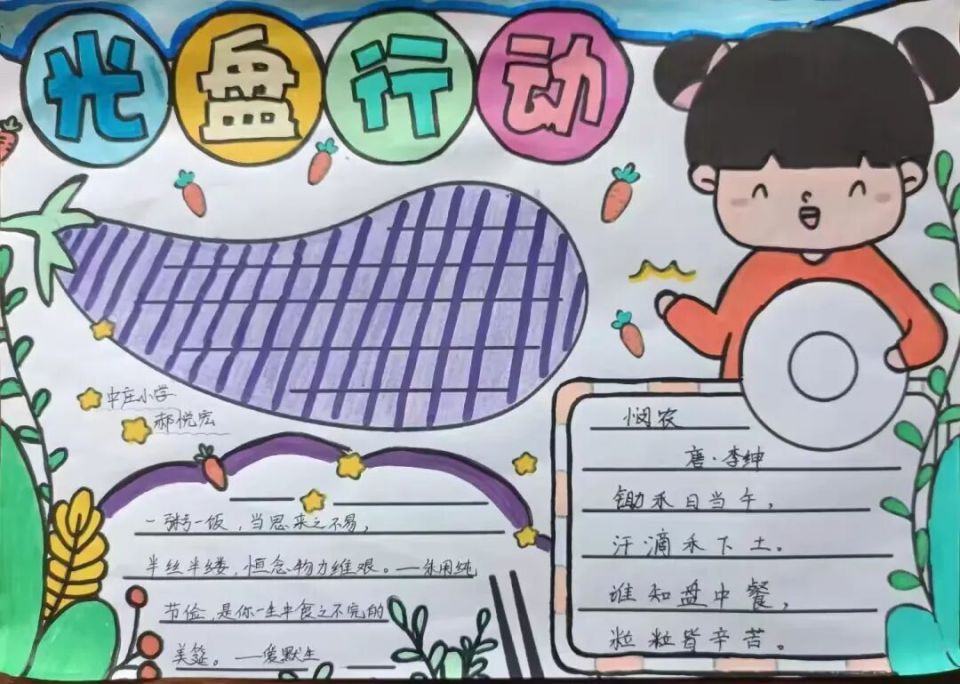 光盘行动
中庄小学
郝悦宏
一粥一饭，当思来之不易，
半丝半缕，恒念物力维艰。——朱用纯
节俭，是你一生中食之不完的
美筵。——爱默生
悯农
唐·李绅
锄禾日当午，
汗滴禾下土。
谁知盘中餐，
粒粒皆辛苦。